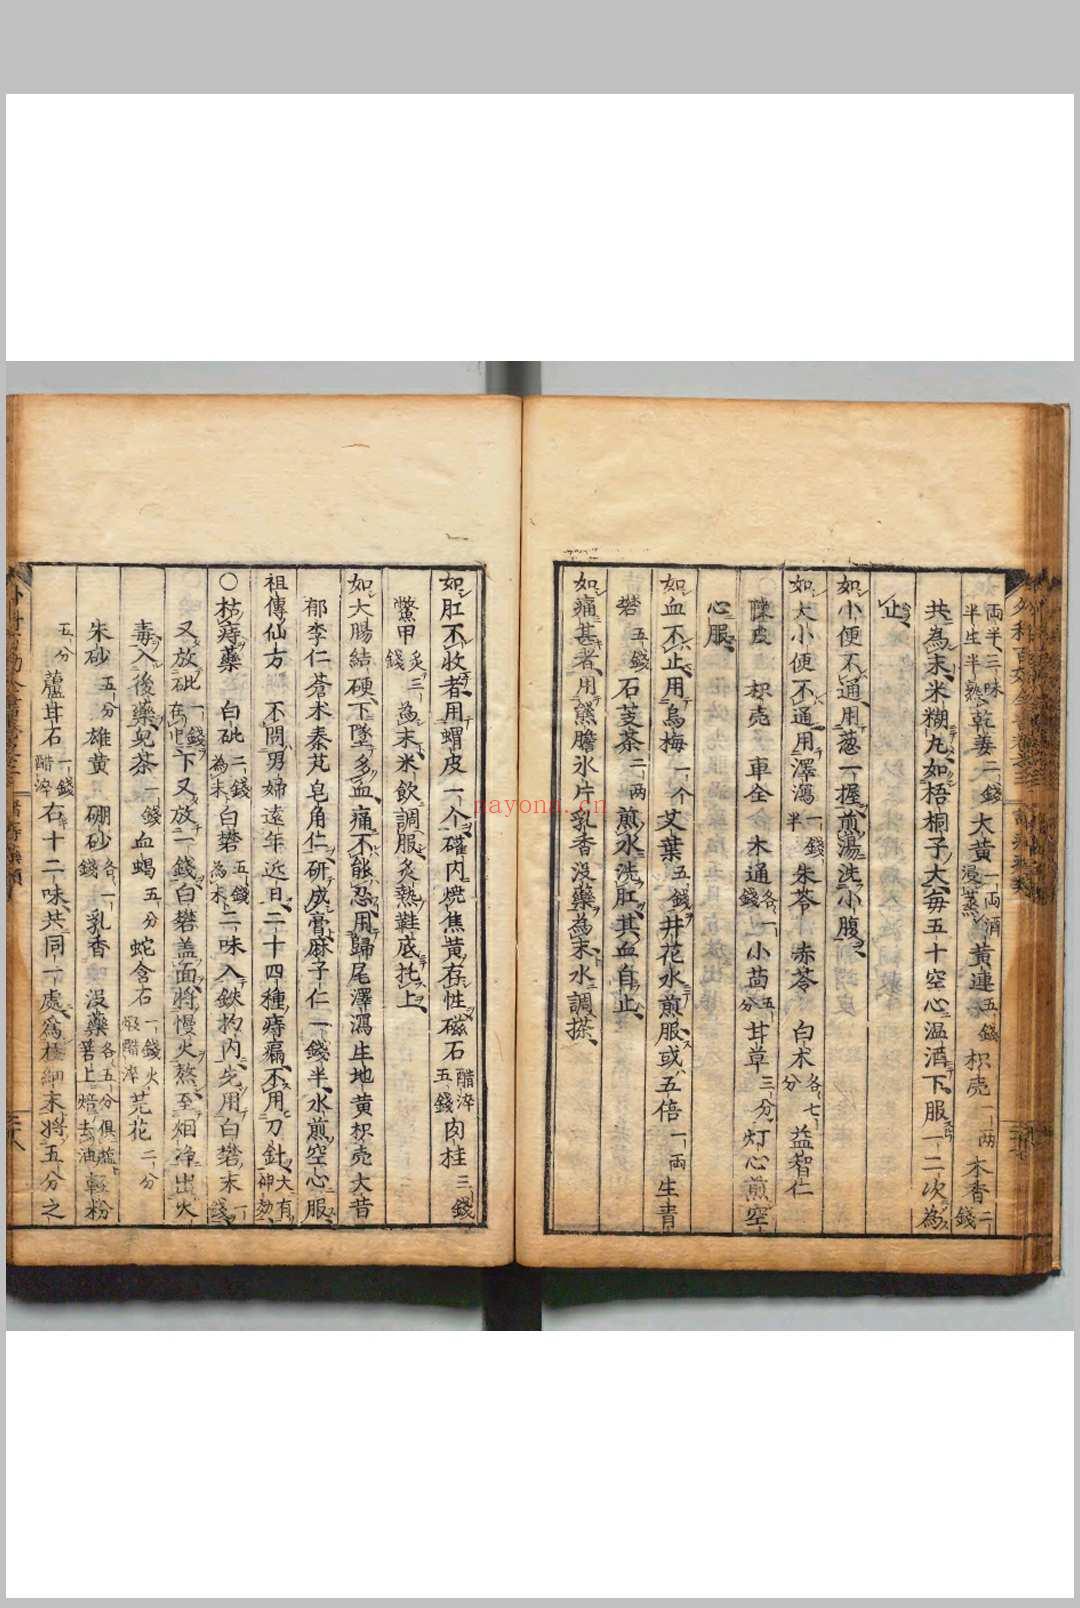 兩半三味半生半熟乾姜二錢大黃一兩酒浸蒸黃連五錢枳壳一兩木香二錢
共為末米糊丸如梧桐子大每五十空心温酒下服一二次為
止
如小便不通用葱一握煎湯洗小腹
如大小便不通用澤瀉一錢半朱苓赤苓白术各七分益智仁
陳皮枳壳車全木通各一錢小茴五分甘草三分灯心煎空
心服
如血不止用烏梅一个艾葉五錢井花水煎服或五倍一兩生青
礬五錢石芰茶二兩煎水洗肛其血自止
如痛甚者用熊膽氷片乳香没藥為末水調搽
如肛不收者用蝟皮一个礶内燒焦黃存性磁石醋淬五錢肉桂三錢
鱉甲炙三錢為末米飲調服炙熱鞋底托上
如大腸結硬下墜多血痛不能忍用歸尾澤瀉生地黄枳壳大昔
郁李仁蒼术秦芃皂角仁研成膏麻子仁一錢半水煎空心服
祖傳仙方不問男婦遠年近日二十四種痔痛不用刀針大有神効
○枯痔藥白砒二錢為末白礬五錢為末二味入鉄杓内先用白礬末一錢
又放砒一錢在上下又放二錢白礬盖面將慢火熬至烟净出火
毒入後藥兒茶一錢血蝎五分蛇含石一錢火煅醋淬芫花二分
朱砂五分雄黄硼砂各一錢乳香没藥各五分俱爐箬上焙去油輕粉
五分蘆甘石一錢醋淬右十二味共同一處為極細末將五分之
nayona.cn